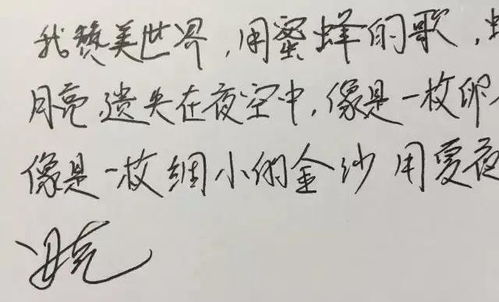 我赞美世界，用蜜蜂的歌，
月亮，遗失在夜空中，像是一枚卵
像是一枚细小的金沙 用夏夜